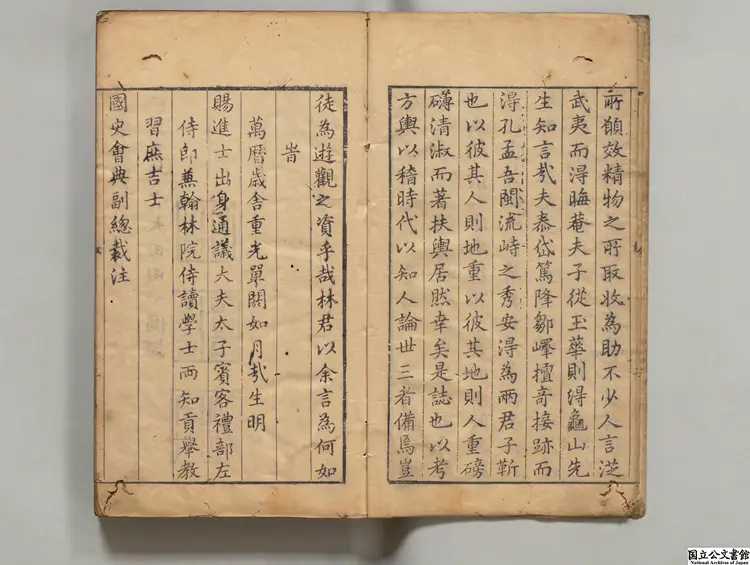 所額效精物之所取收為助不少人言從
武夷而得晦菴夫子從玉華則得龜山先
生知言哉夫泰岱篤降鄒嶧擅竒接跡而
淂孔孟吾閩流峙之秀安淂為兩君子靳
也以彼其人則地重以彼其地則人重磅
礴清淑而著扶輿居然幸矣是誌也以考
方輿以稽時代以知人論世三者備焉豈
徒為逰觀之資乎哉林君以余言為何如
旹
萬曆歲舍重光單閼如月哉生明
賜進士出身通議大夫太子賓客禮部左
侍郎兼翰林院侍讀學士両知貢舉教
習庶吉士
國史會典副總裁注
国立公文書館
National Archives of Japan